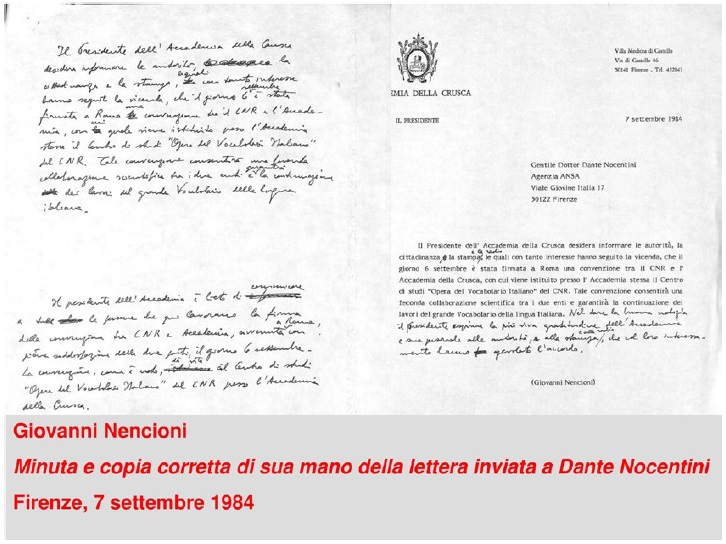 Il Presidente dell'Accademia della Crusca
desidera informare le autorità, la
cittadinanza e la stampa, le quali con tanto interesse
hanno seguito la vicenda, che il giorno 6 settembre è stata
firmata a Roma una convenzione tra il CNR e l'Accade-
mia, con cui viene istituito presso l'Accademia
stessa il Centro di studi "Opera del Vocabolario Italiano"
del CNR. Tale convenzione consentirà una feconda
collaborazione scientifica tra i due enti e garantirà la continuazione
dei lavori del grande Vocabolario della lingua
italiana.
Il presidente dell'Accademia è lieto di comunicare
a le persone che
della convenzione tra CNR e Accademia, avvenuta con
piena soddisfazione delle due parti, il giorno 6 settembre a Roma.
La convenzione, come è noto, dà vita al Centro di studi
"Opera del Vocabolario Italiano" del CNR presso l'Accademia
della Crusca.
Villa Medicea di Castello
Via di Castello 46
50141 Firenze - Tel.
EMIA DELLA CRUSCA
IL PRESIDENTE
7 settembre 1984
Gentile Dottor Dante Nocentini
Agenzia ANSA
Viale Giovine Italia 17
50122 Firenze
Il Presidente dell' Accademia della Crusca desidera informare le autorità, la
cittadinanza, la stampa e la radio, le quali con tanto interesse hanno seguito la vicenda, che il
giorno 6 settembre è stata firmata a Roma una convenzione tra il CNR e l'
Accademia della Crusca, con cui viene istituito presso l'Accademia stessa il Centro
di studi "Opera del Vocabolario Italiano" del CNR. Tale convenzione consentirà una
feconda collaborazione scientifica tra i due enti e garantirà la continuazione dei
lavori del grande Vocabolario della lingua italiana. Nel dare la buona notizia
il presidente esprime la più viva gratitudine dell'Accademia
e sua personale alle autorità, e alla stampa, che col loro interessa-
mento hanno agevolato l'accordo.
(Giovanni Nencioni)
Giovanni Nencioni
Minuta e copia corretta di sua mano della lettera inviata a Dante Nocentini
Firenze, 7 settembre 1984